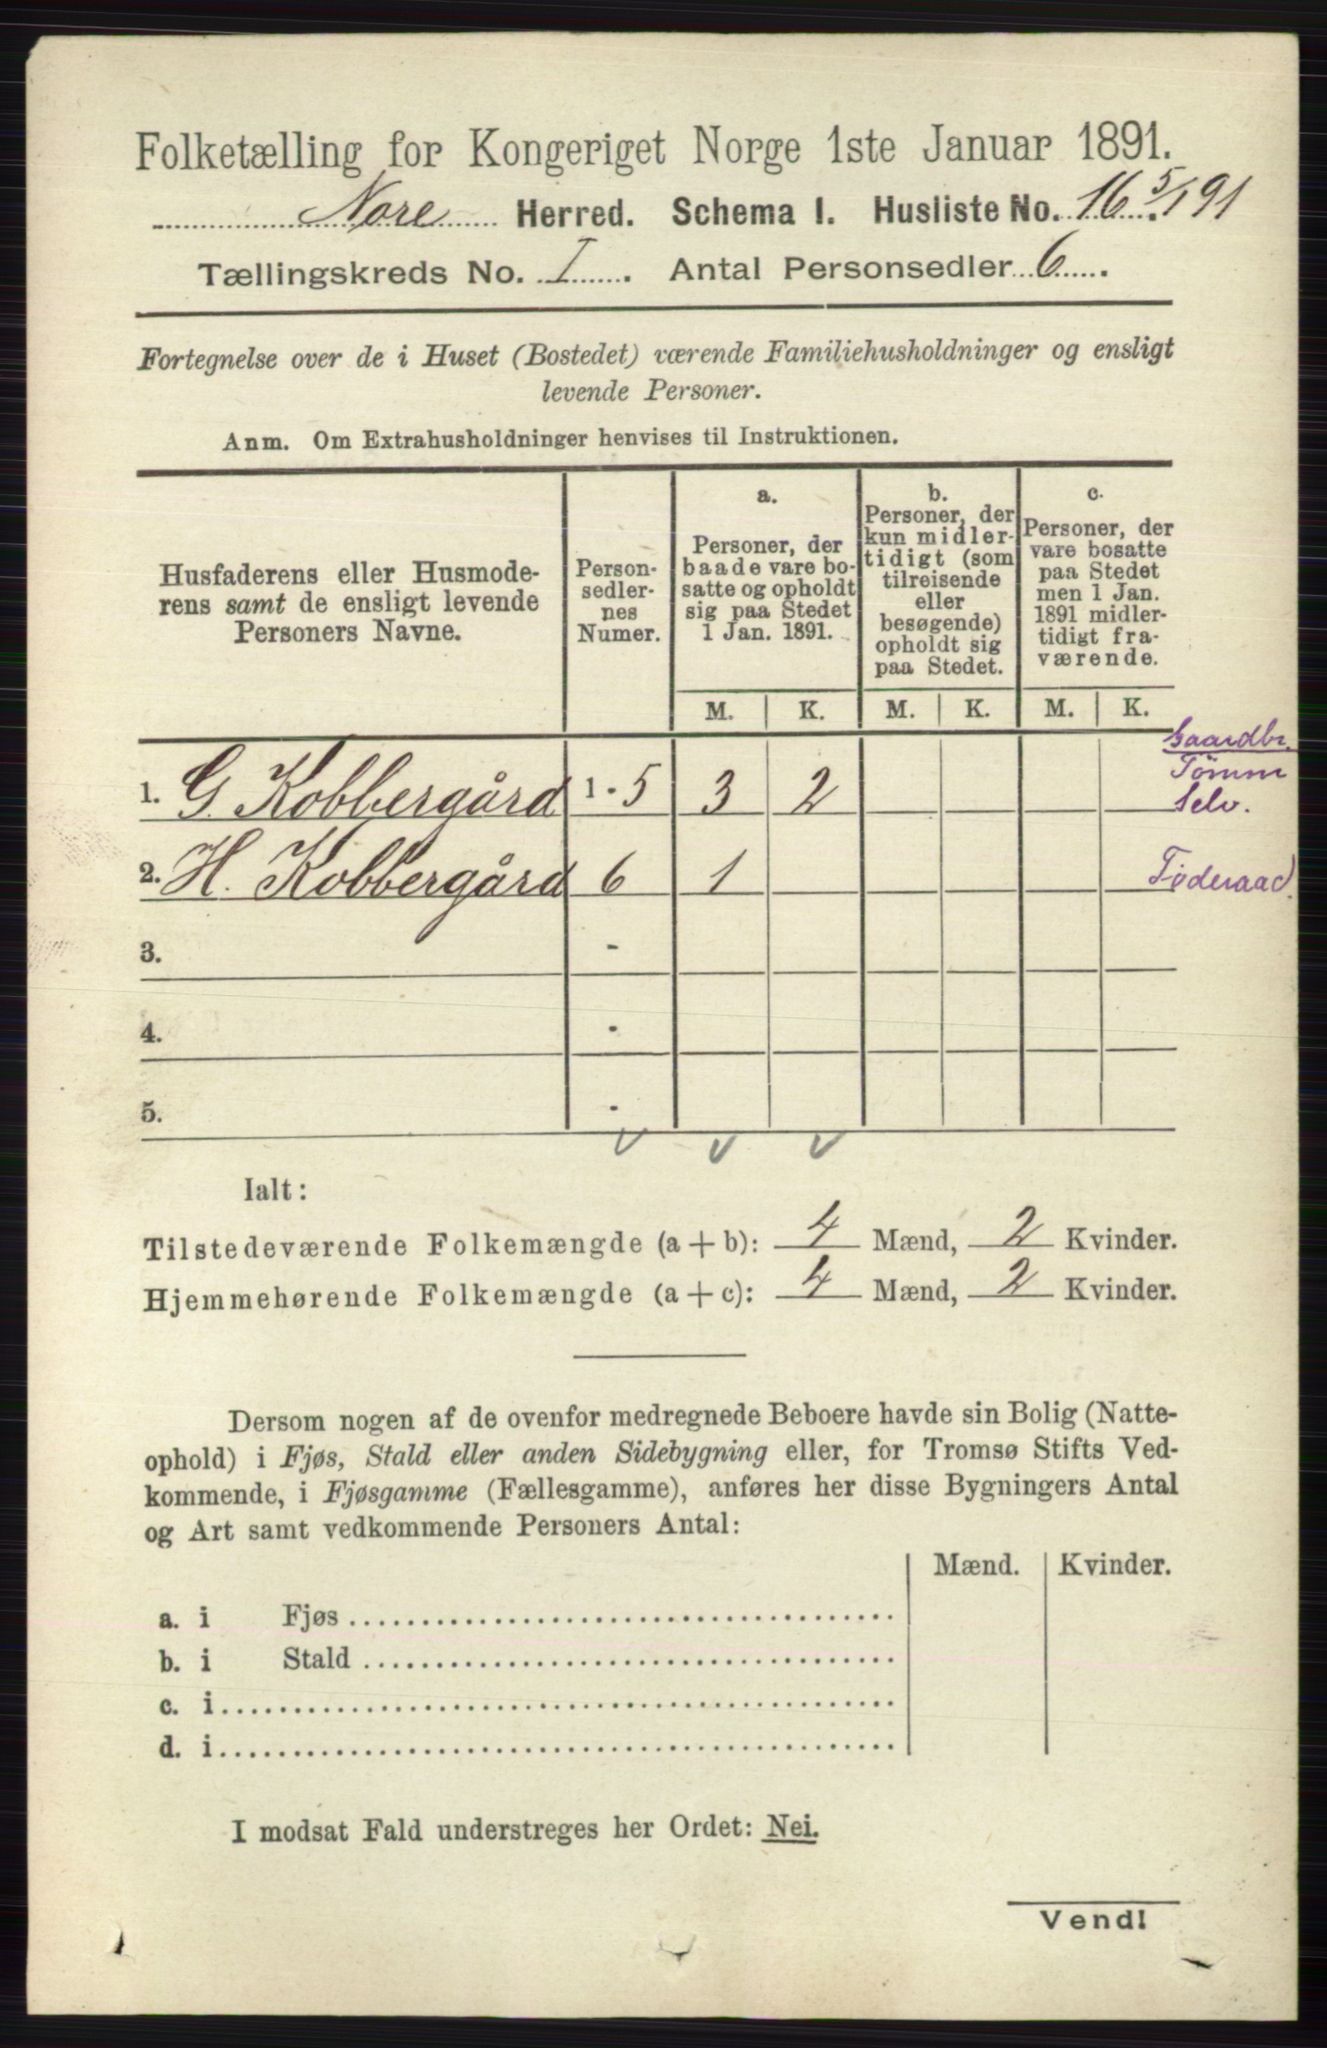 Folketælling for Kongeriget Norge 1ste Januar 1891.
Nore Herred. Schema I. Husliste No. 16 5/1 91
Tællingskreds No. I. Antal Personsedler 6.
Fortegnelse over de i Huset (Bostedet) værende Familiehusholdninger og ensligt
levende Personer.
Anm. Om Extrahusholdninger henvises til Instruktionen.
Husfaderens eller Husmode-
rens samt de ensligt levende
Personers Navne.
Person-
sedler-
nes
Numer.
a.
Personer, der
baade vare bo-
satte og opholdt
sig paa Stedet
1 Jan. 1891.
b.
Personer, der
kun midler-
tidigt (som
tilreisende
eller
besøgende)
opholdt sig
paa Stedet.
c.
Personer, der
vare bosatte
paa Stedet
men 1 Jan.
1891 midler-
tidigt fra-
værende.
M. K. M. K. M. K.
Gaardbr.
Tømm
Selv.
1. G. Kobbergård 1 - 5 3 2
2. H. Kobbergård 6 1 Føderaad.
3. -
4. -
5. -
Ialt:
Tilstedeværende Folkemængde (a + b): 4 Mænd, 2 Kvinder.
Hjemmehørende Folkemængde (a + c): 4 Mænd, 2 Kvinder.
Dersom nogen af de ovenfor medregnede Beboere havde sin Bolig (Natte-
ophold) i Fjøs, Stald eller anden Sidebygning eller, for Tromsø Stifts Ved-
kommende, i Fjøsgamme (Fællesgamme), anføres her disse Bygningers Antal
og Art samt vedkommende Personers Antal:
Mænd. Kvinder.
a. i Fjøs
b. i Stald
c. i
d. i
I modsat Fald understreges her Ordet: Nei.
Vend!